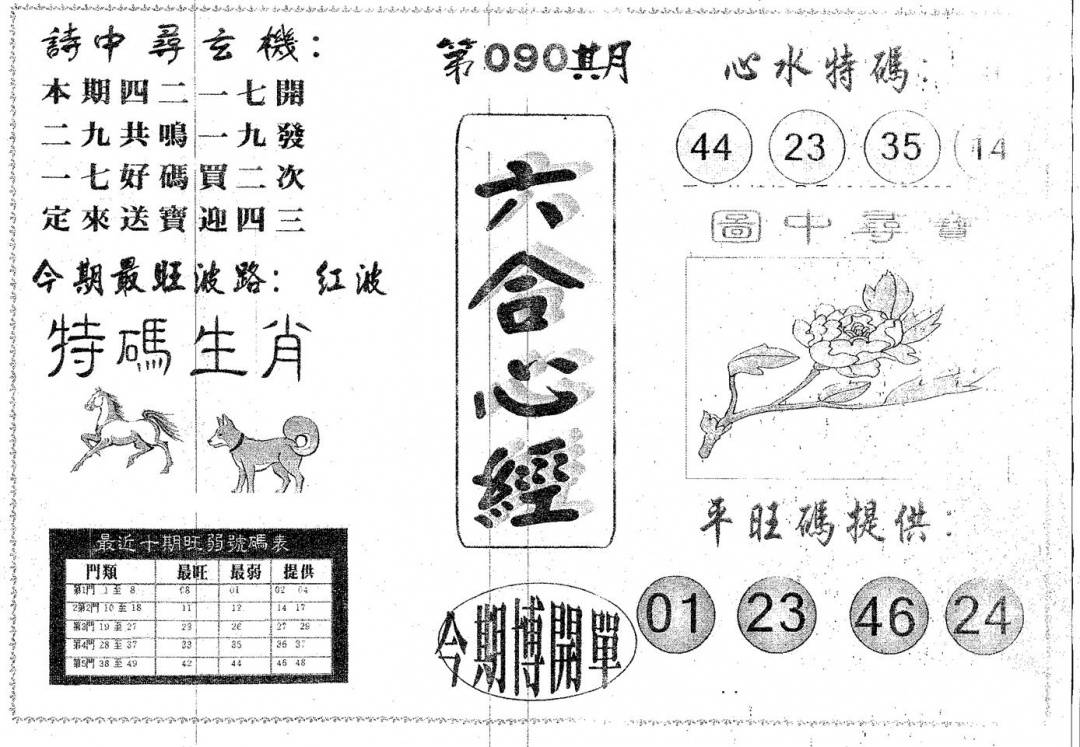 詩中尋玄機：
本期四二一七開
二九共鳴一九發
一七好碼買二次
定來送寶迎四三
今期最旺波路：红波
特碼生肖
最近十期旺弱號碼表
門類 最旺 最弱 提供
第1門 1 至 8 08 01 02 04
2第2門 10 至 18 11 12 14 17
第3門 19 至 27 23 26 27
第4門 28 至 37 33 35 36 37
第5門 38 至 49 42 44 46 48
第090其月
六合心經
今期博開單
心水特碼：
44 23 35 14
圖中尋寶
平旺碼提供：
01 23 46 24